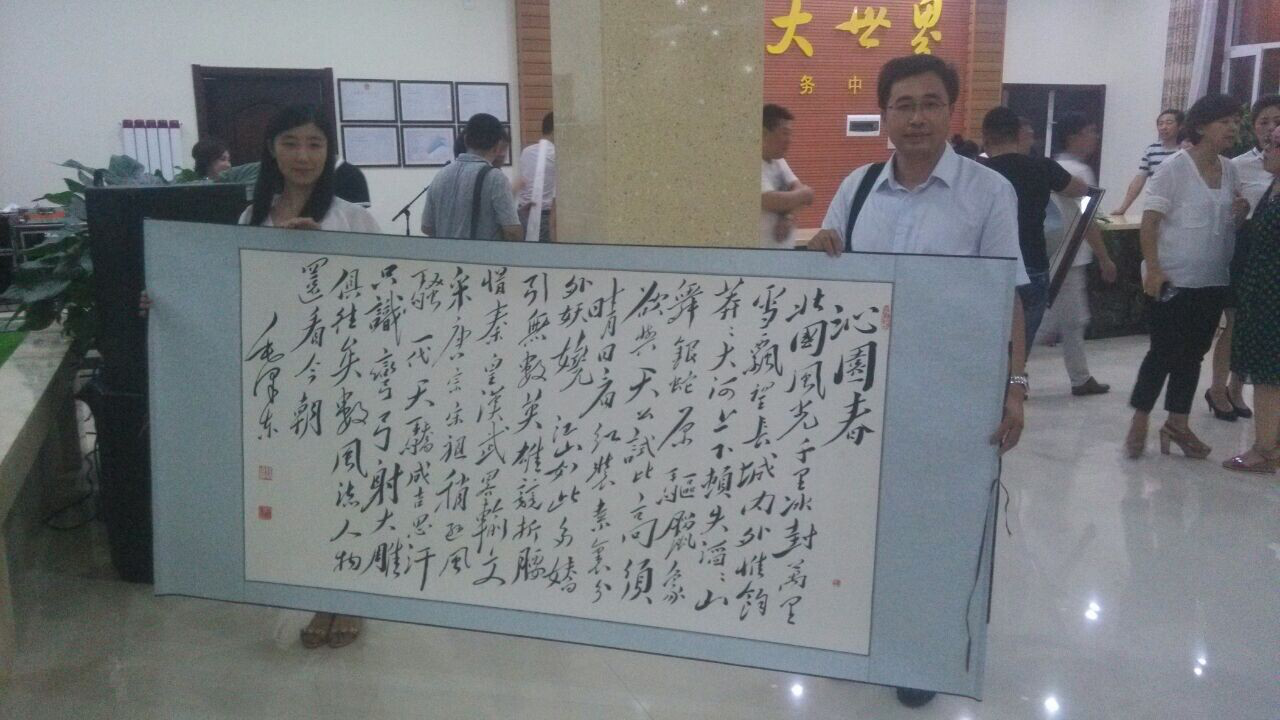 大世界
务中
沁園春
北國風光千里冰封萬里
雪飄望長城内外惟餘
莽〻大河上下頓失滔〻山
舞銀蛇原驅蠟象
欲與天公試比高須
晴日看红裝素裹分
外妖嬈江山如此多嬌
引無數英雄競折腰
惜秦皇漢武畧輸文
采唐宗宋祖稍遜風
騷一代天驕成吉思汗
只識彎弓射大雕
俱往矣數風流人物
還看今朝
毛澤东